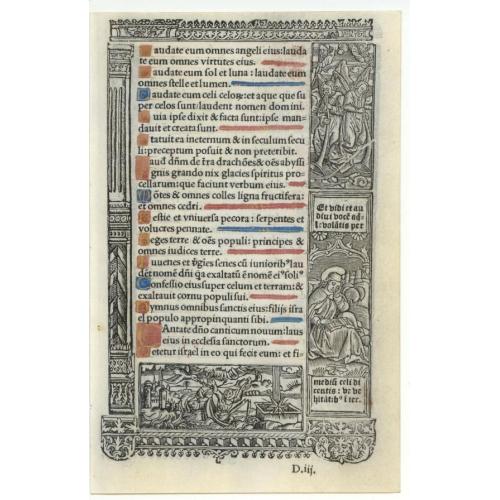 audate eum omnes angeli eius: lauda
te eum omnes virtutes eius.
audate eum sol et luna: laudate eum
omnes stelle et lumen.
audate eum celi celoꝝ: et aque que su
per celos sunt: laudent nomen domini.
uia ipse dixit & facta sunt: ipse man
dauit et creata sunt.
tatuit ea ineternum & in seculum secu
li: preceptum posuit & non preteribit.
aud dñm de t̃ra drachões: & oẽs abyssi
gnis grando nix glacies spiritus pro
cellarum: que faciunt verbum eius.
õtes & omnes colles ligna fructifera:
et omnes cedri.
estie et vniuersa pecora: serpentes et
volucres pennate.
eges terre & oẽs populi: principes &
omnes iudices terre.
uuenes et senes cũ iuniorib⁹ lau
det nomẽ dñi: q̃a exaltatũ ẽ nomẽ ei⁹ soli⁹
onfessio eius super celum et terram: &
exaltauit cornu populi sui.
ymnus omnibus sanctis eius: filijs isra
el populo appropinquanti sibi.
Antate dño canticum nouum: laus
eius in ecclesia sanctorum.
etetur israel in eo qui fecit eum: et fi-
Et vidi et au
diui vocẽ
volãtis per
mediũ celi di
centis: ve ve
hitãtib⁹ ĩ ter.
D.iij.